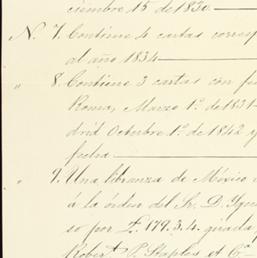 ciembre 15 de 1830.
N. 7. Contiene 4 cartas corresp
al año 1834
" 8. Contiene 3 cartas con fe
Roma, Marzo 1º. de 1831
drid Octubre 1º. de 1842 y
fecha
" 9. Una libranza de México
á la órden del Sr. D. Ygna
so por £. 179.3.4. girada
Robert P. Staples et Cª